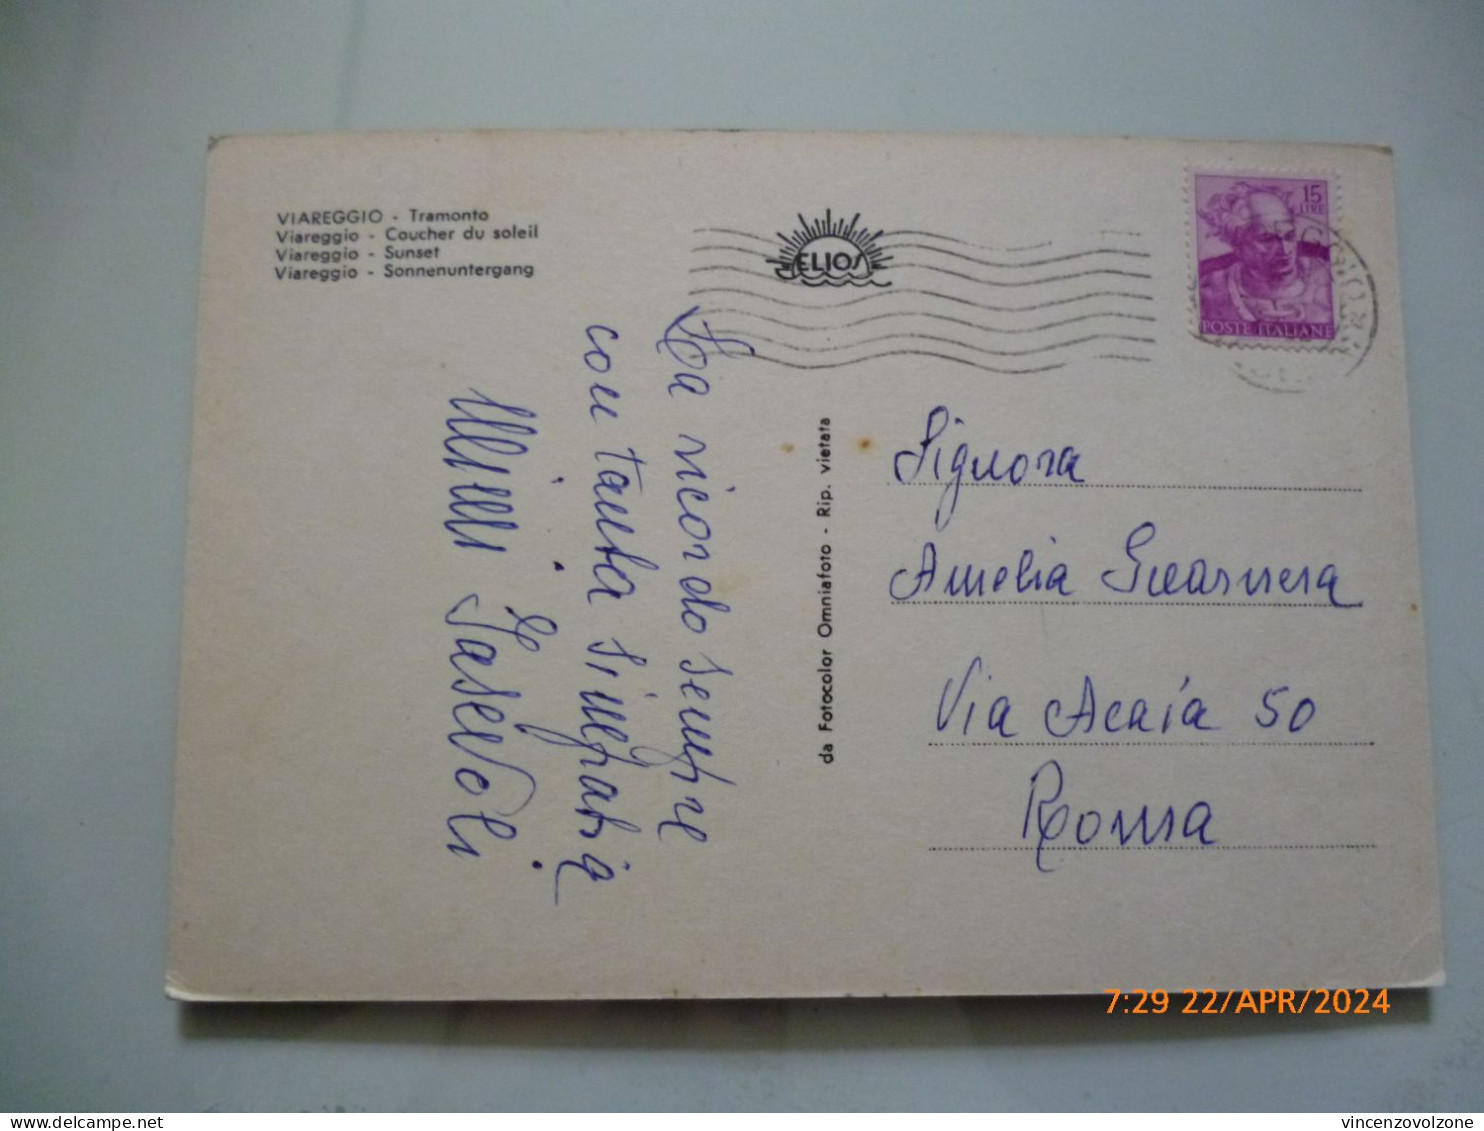 VIAREGGIO - Tramonto
Viareggio - Coucher du soleil
Viareggio - Sunset
Viareggio - Sonnenuntergang
ELIOS
15
LIRE
POSTE ITALIANE
La ricordo sempre
con tanta simpatia
da Fotocolor Omniafoto - Rip. vietata
Signora
Amelia Guarnera
Via Acaia 50
Roma
7:29 22/APR/2024
vincenzovolzone